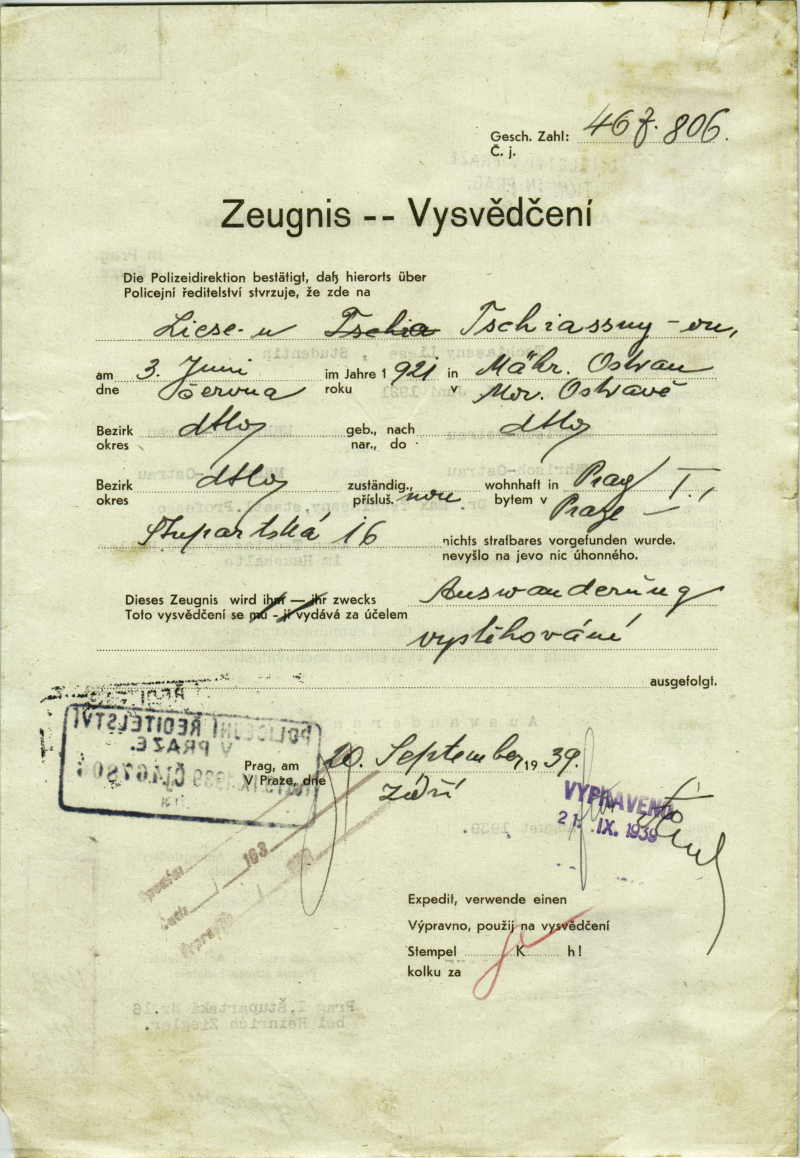 Gesch. Zahl: 46 806.
Č. j.
Zeugnis -- Vysvědčení
Die Polizeidirektion bestätigt, daß hierorts über
Policejní ředitelství stvrzuje, že zde na
Liese-u Tschia Tschiassny-ou,
am 3. Juni im Jahre 1921 in Mähr. Ostrau
dne června roku v Mor. Ostravě
Bezirk dtto geb., nach dtto
okres nar., do
Bezirk dtto zuständig., wohnhaft in Prag I.,
okres přísluš. nou bytem v Praze
Štupartská 16 nichts strafbares vorgefunden wurde.
nevyšlo na jevo nic úhonného.
Dieses Zeugnis wird ihm — ihr zwecks Auswanderung
Toto vysvědčení se mu - jí vydává za účelem
vystěhování
ausgefolgt.
POLICEJNÍ ŘEDITELSTVÍ
V PRAZE.
Prag, am 20. September 1939.
V Praze, dne září
VYPRAVENO
21. IX. 1939
193
Expedit, verwende einen
Výpravno, použij na vysvědčení
Stempel K h!
kolku za
Prag I. Štupartská Nr. 16
bei Heinrich Ziegler.